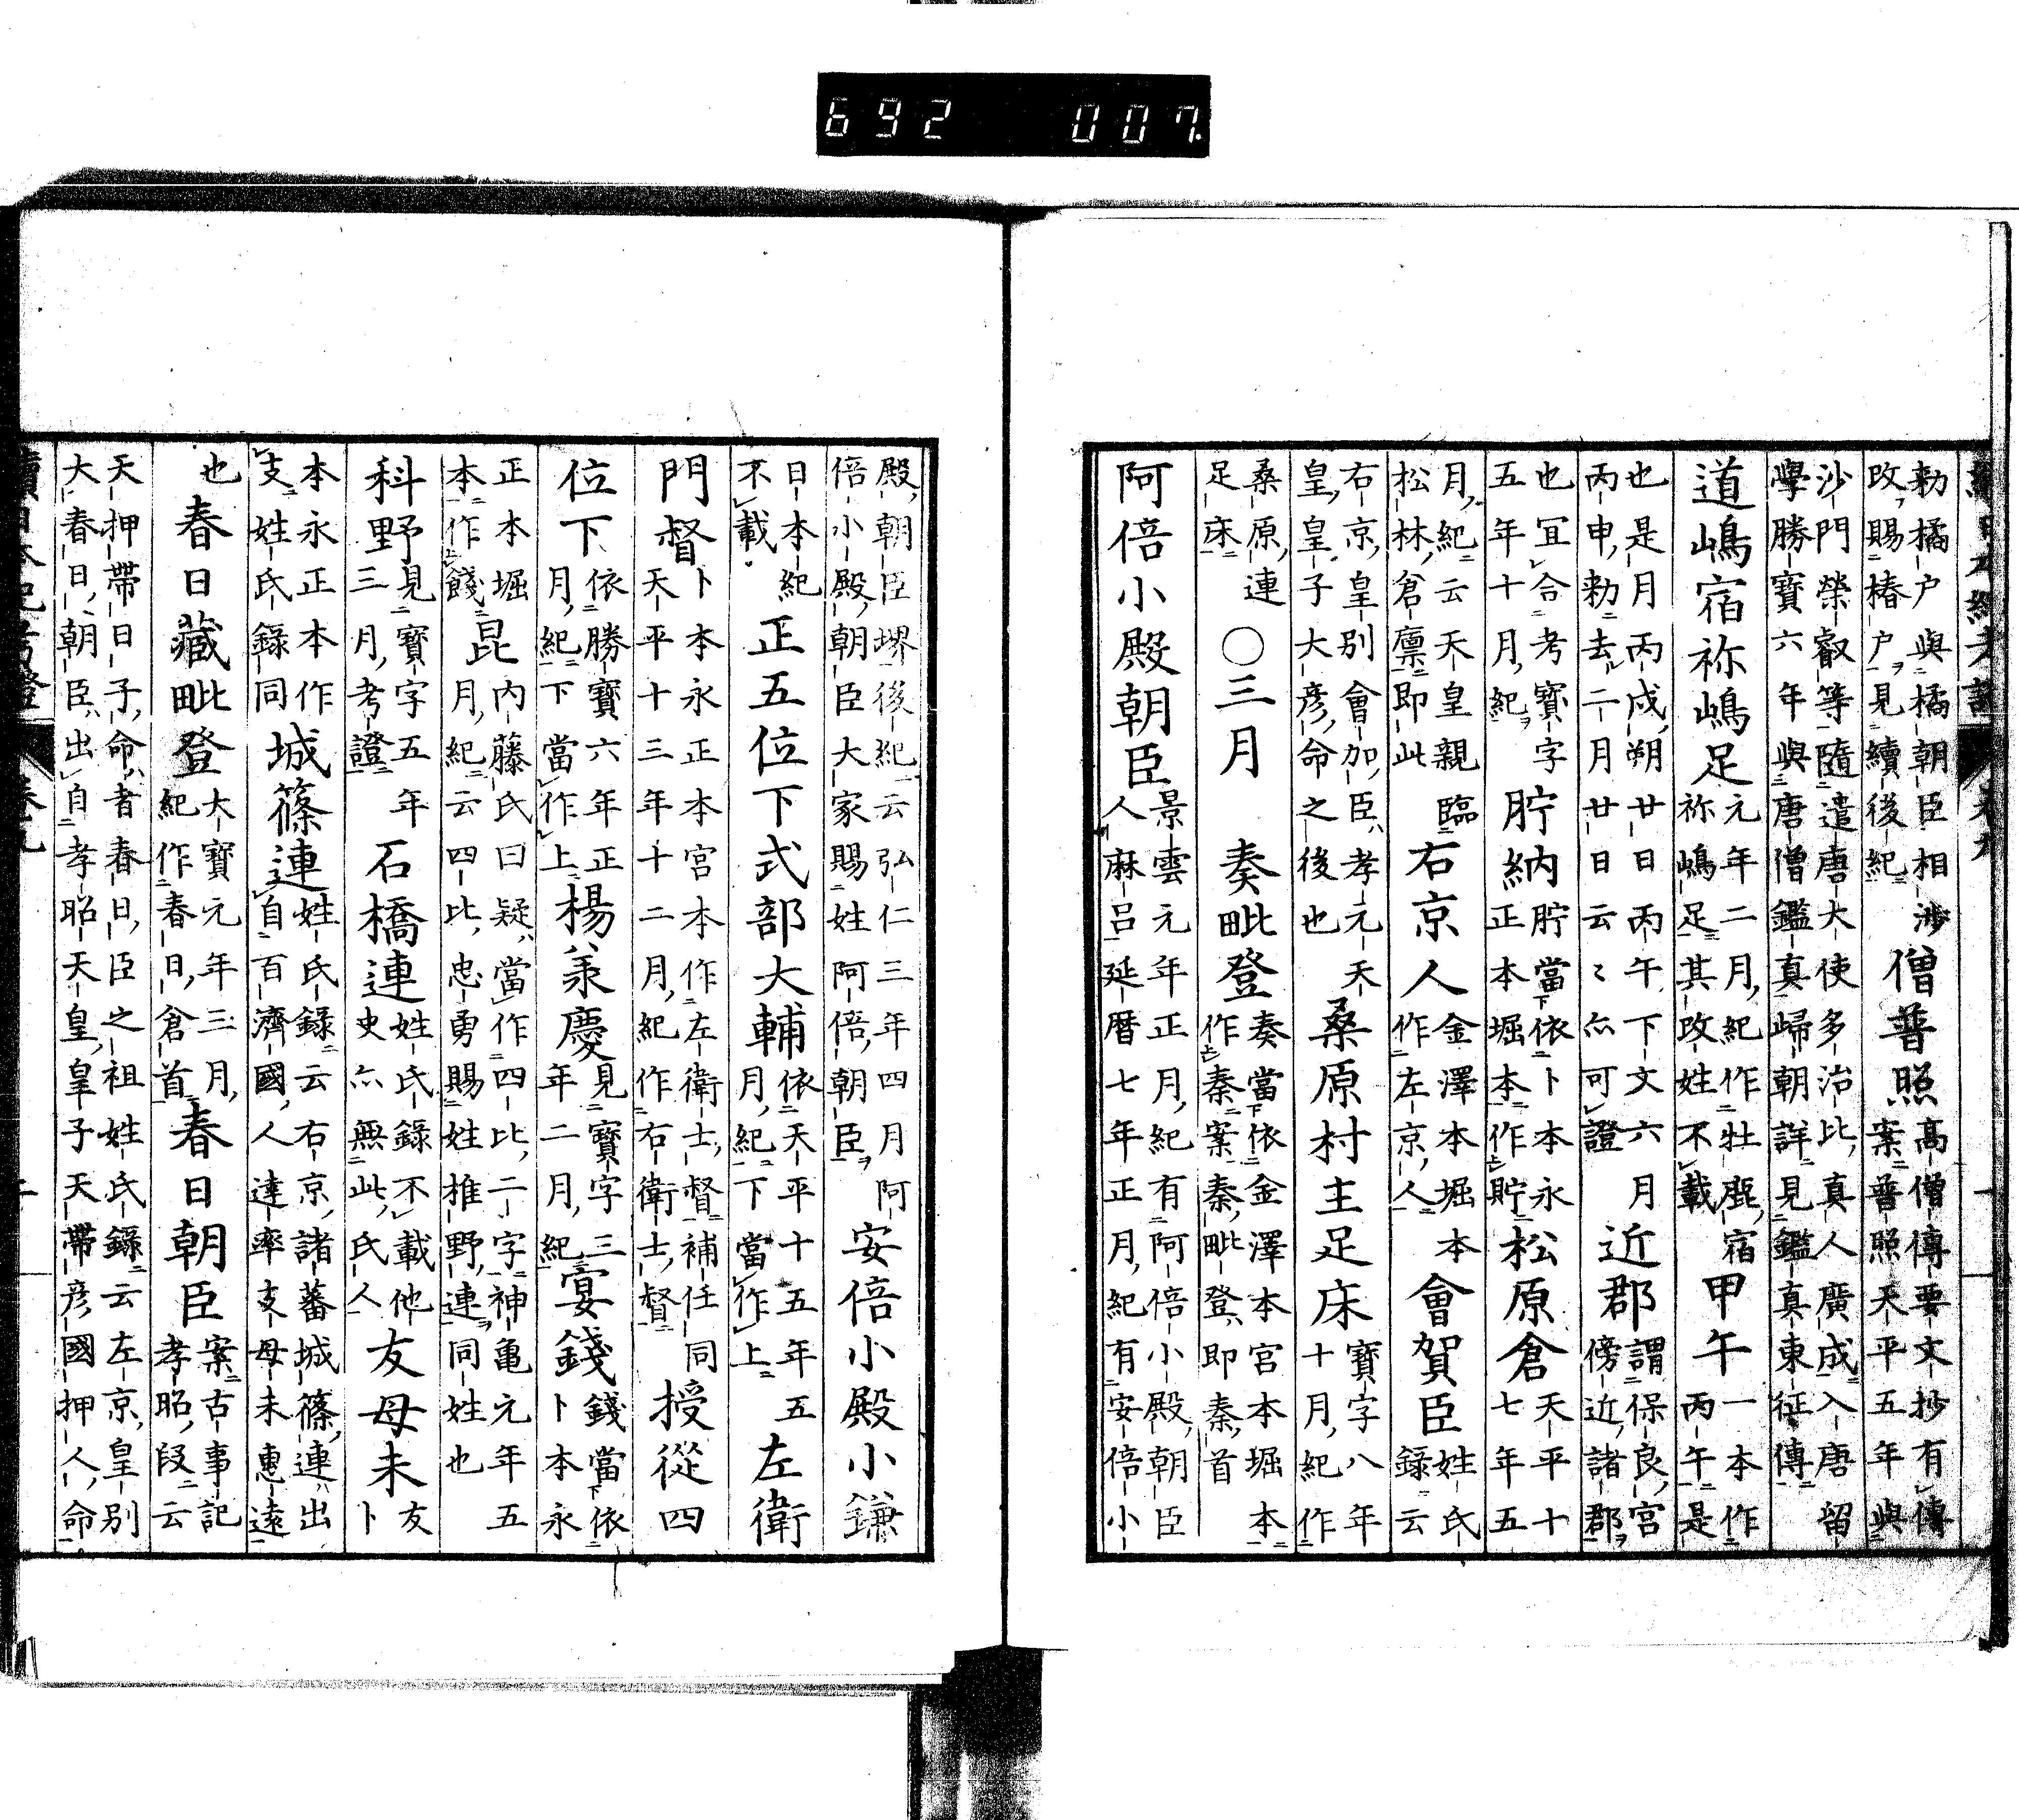 692 007
勅橘戸與橘朝臣相渉
改賜椿戸見續後紀
僧普照
高僧傳要文抄有傳
案普照天平五年與
沙門榮叡等隨遣唐大使多治比真人廣成入唐留
學勝寶六年與唐僧鑑真歸朝詳見鑑真東征傳
道嶋宿祢嶋足
元年二月紀作牡鹿宿
祢嶋足其改姓不載
甲午
一本作
丙午是
也是月丙戌朔廿日丙午下文六月
丙申勅去二月廿日云〻亦可證
近郡
謂保良宮
傍近諸郡
也宜合考寶字
五年十月紀
䏡納
䏡當依卜本永
正本堀本作貯
松原倉
天平十
七年五
月紀云天皇親臨
松林倉廩即此
右京人
金澤本堀本
作左京人
會賀臣
姓氏
録云
右京皇別會加臣孝元天
皇皇子大彦命之後也
桑原村主足床
寶字八年
十月紀作
桑原連
足床
○三月 奏毗登
奏當依金澤本宮本堀本
作秦案秦毗登即秦首
阿倍小殿朝臣
景雲元年正月紀有阿倍小殿朝臣
人麻呂延暦七年正月紀有安倍小
殿朝臣堺後紀云弘仁三年四月阿
倍小殿朝臣大家賜姓阿倍朝臣
安倍小殿小鎌
日本紀
不載
正五位下式部大輔
依天平十五年五
月紀下當作上
左衛
門督
卜本永正本宮本作左衛士督補任同
天平十三年十二月紀作右衛士督
授從四
位下
依勝寶六年正
月紀下當作上
楊羕慶
見寶字三
年二月紀
宴錢
錢當依
卜本永
正本堀
本作餞
昆
内藤氏曰疑當作四比二字神亀元年五
月紀云四比忠勇賜姓推野連同姓也
科野
見寶字五年
三月考證
石橋連
姓氏録不載他
史亦無此氏人
友母未
友
卜
本永正本作
支姓氏録同
城篠連
姓氏録云右京諸蕃城篠連出
自百濟國人達率支母未惠遠
也
春日藏毗登
大寶元年三月
紀作春日倉首
春日朝臣
案古事記
孝昭段云
天押帶日子命者春日臣之祖姓氏録云左京皇別
大春日朝臣出自孝昭天皇皇子天帶彦國押人命